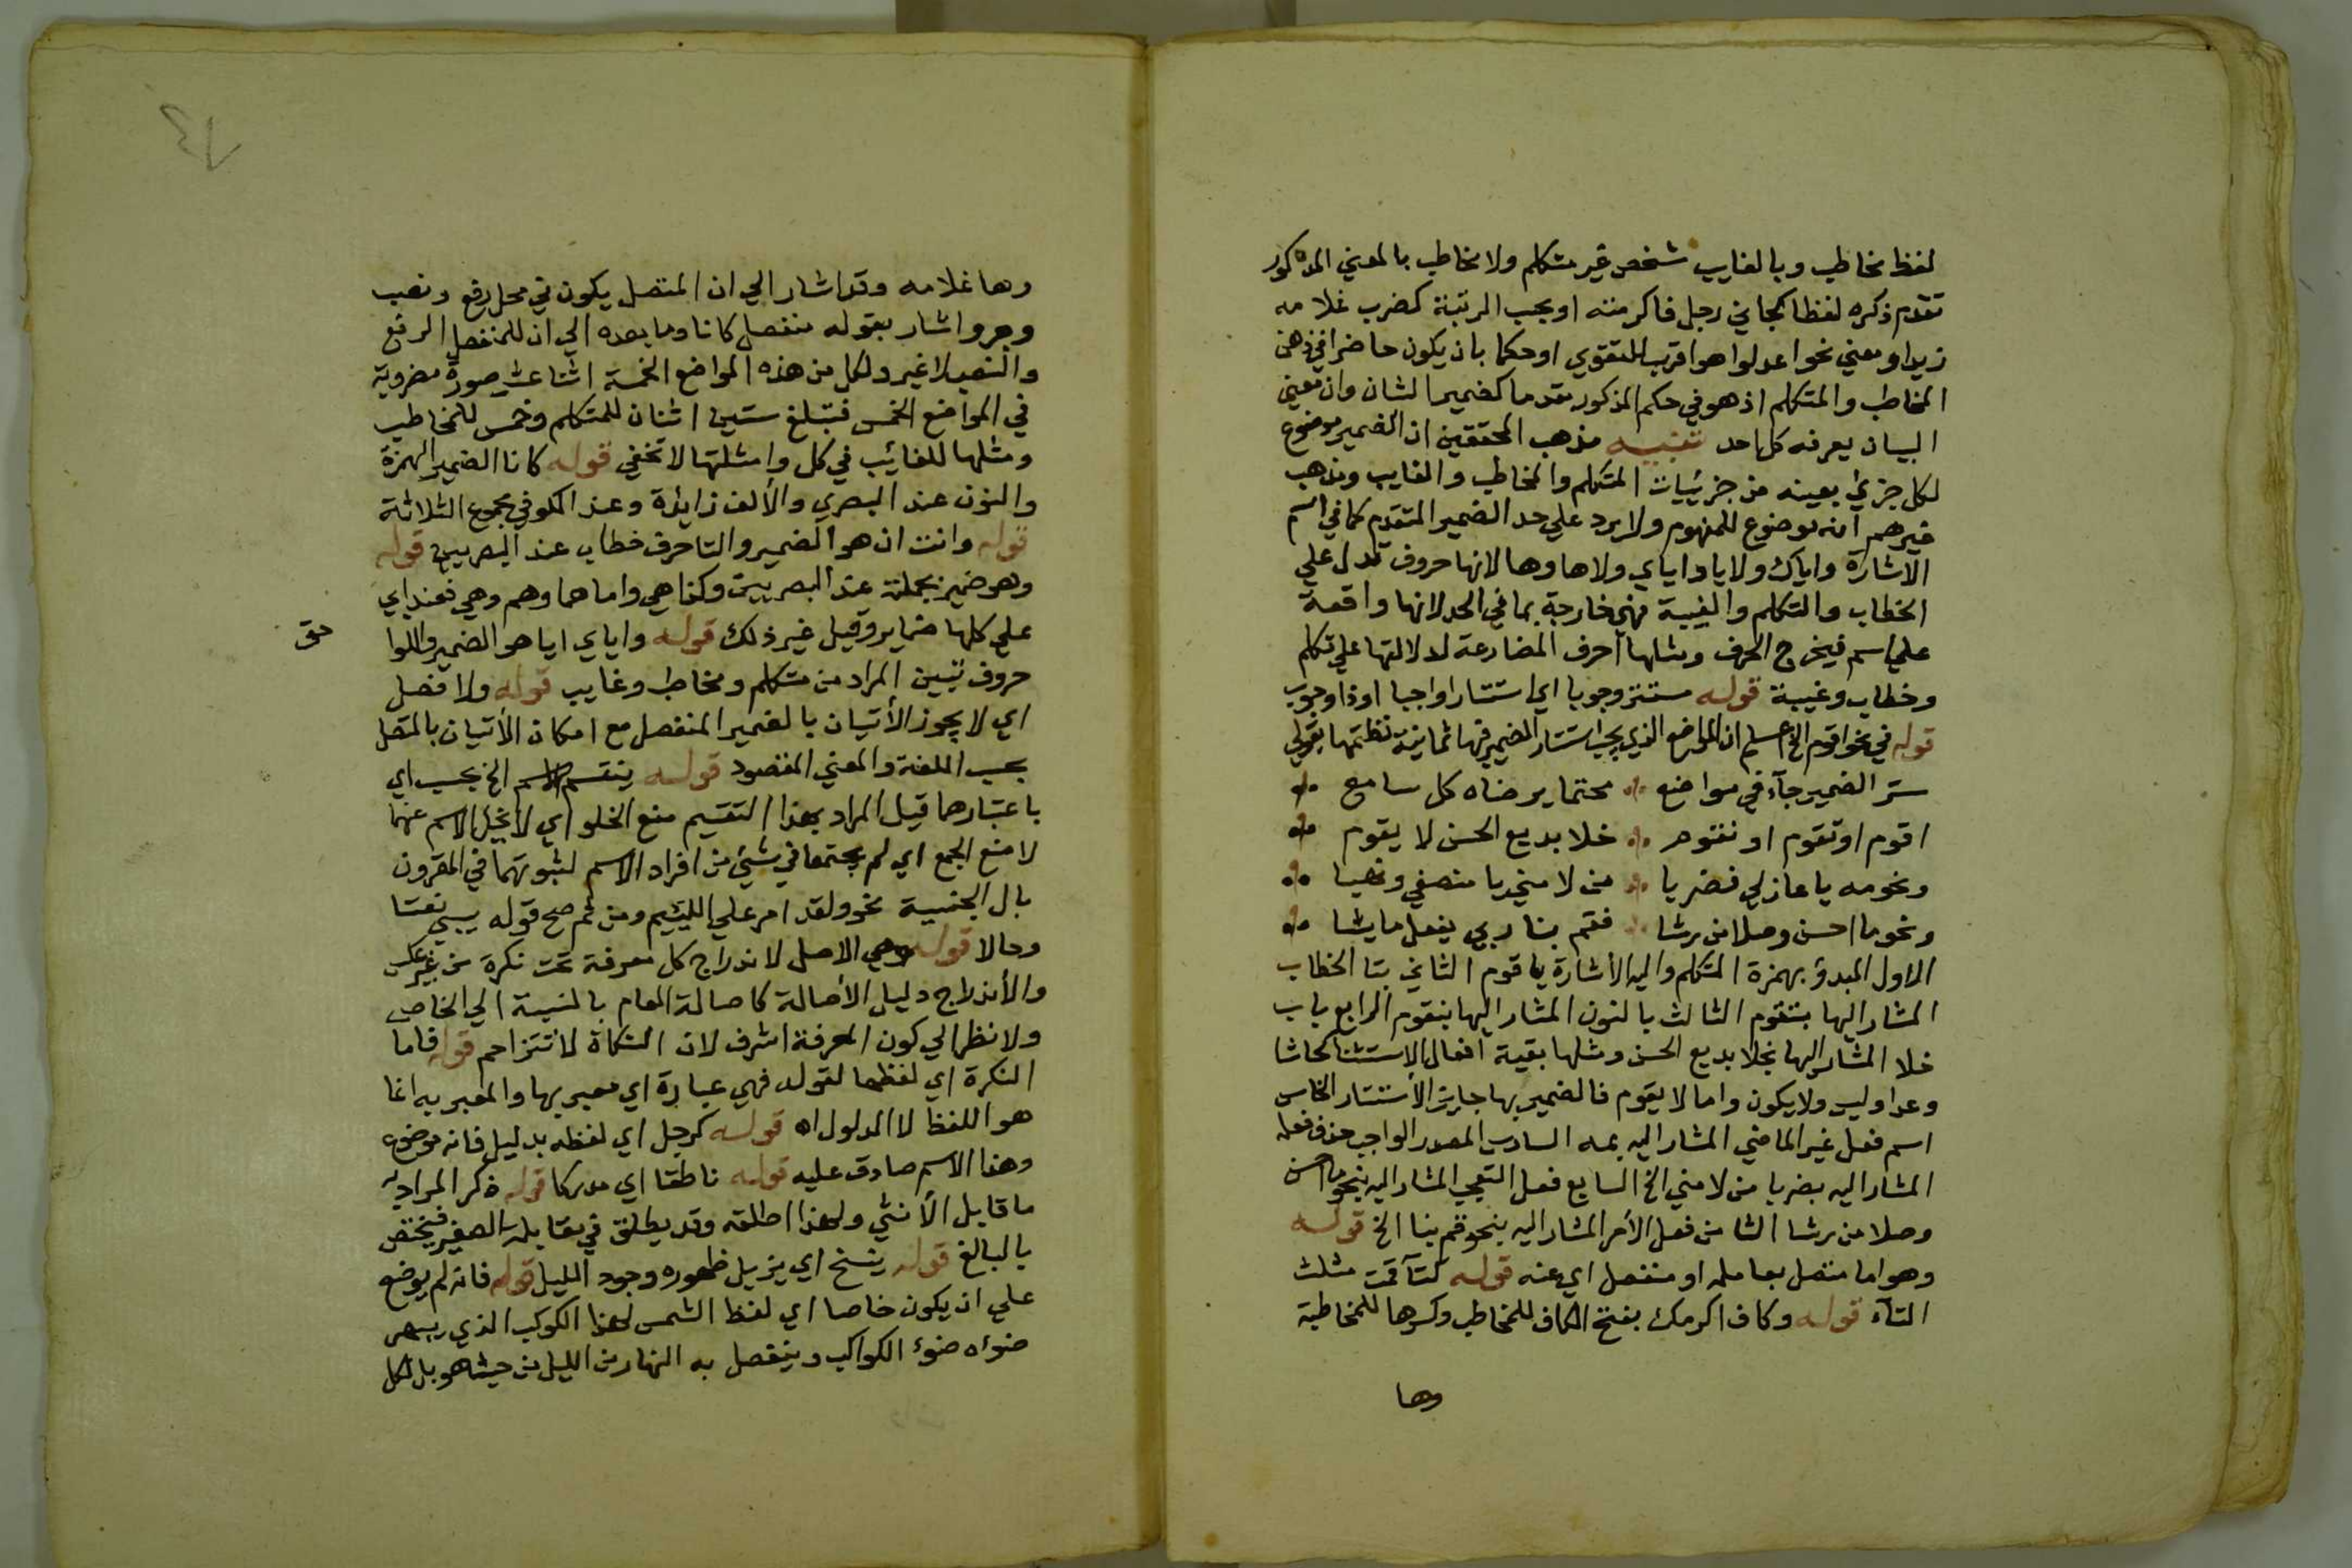 لفظ مخاطب وبالغايب شخص غير متكلم ولا مخاطب بالمعني المذكور
تقدم ذكره لفظا كجاني رجل فاكرمته او بحسب الرتبة كضرب غلامه
زيد او معني نحو اعدلوا هو اقرب للتقوي او حكما بان يكون حاضرا في ذهن
المخاطب والمتكلم اذ هو في حكم المذكور مقدما كضمير الشان وان معني
البيان يعرفه كل احد تنبيه مذهب المحققين ان الضمير موضوع
لكل جزئي بعينه من جزئيات المتكلم والمخاطب والغايب ومذهب
غيرهم انه موضوع للمفهوم ولا يرد علي حد الضمير المتقدم كما في اسم
الاشارة واياك ولا ياء اياي ولا هاوها لانها حروف تدل علي
الخطاب والتكلم والغيبة فهي خارجة بما في الحد لانها واقعة
علي اسم فيخرج الحرف ومثلها احرف المضارعة لدلالتها علي تكلم
وخطاب وغيبة قوله مستتر وجوبا اي استتارا واجبا او ذا وجوب
قوله في نحو اقوم الخ اعلم ان المواضع الذي يجب استتار الضمير فيها ثمانية نظمتها بقولي
ستر الضمير جآء في مواضع محتما يرضاه كل سامع
اقوم او تقوم او نقوم خلا بديع الحسن لا يقوم
ونحو مه يا عاذلي فضربا من لامني يا منصفي
ونحو ما احسن وصلا من رشا فقم بنا ربي يفعل ما يشا
الاول المبدؤ بهمزة المتكلم واليه الأشارة باقوم الثاني بتا الخطاب
المشار اليها بتقوم الثالث بالنون المشار اليها بنقوم الرابع باب
خلا المشار اليها بخلا بديع الحسن ومثلها بقية افعال الاستثنا كحاشا
وعدا وليس ولا يكون واما لا يقوم فالضمير بها جايز الأستتار الخامس
اسم فعل غير الماضي المشار اليه بمه السادس المصدر الواجب حذف فعله
المشار اليه بضربا من لامني الخ السابع فعل التعجب المشار اليه بنحو ما احسن
وصلا من رشا الثامن فعل الأمر المشار اليه بنحو قم بنا الخ قوله
وهو اما متصل بعامله او منفصل اي عنه قوله كتآ قمت مثلث
التآء قوله وكاف اكرمك بفتح الكاف للمخاطب وكسرها للمخاطبة
وها
وها غلامه وقد اشار الي ان المتصل يكون في محل رفع ونصب
وجر واشار بقوله منفصل كانا وما بعده الي ان للمنفصل الرفع
والنصب لا غير ولكل من هذه المواضع الخمسة اثنا عشر صورة مضروبة
في المواضع الخمس فتبلغ ستين اثنان للمتكلم وخمس للمخاطب
ومثلها للغائب في كل وامثلتها لا تخفي قوله كانا الضمير الهمزة
والنون عند البصري والألف زايدة وعند الكوفي مجموع الثلاثة
قوله وانت ان هو الضمير والتا حرف خطاب عند البصريين قوله
وهو ضمير بجملته عند البصريين وكذا هي واما هما وهم وهي فعند ابي
علي كلها ضماير وقيل غير ذلك قوله واياي ايا هو الضمير واللوا
حق
حروف تبين المراد من متكلم ومخاطب وغايب قوله ولا فصل
اي لا يجوز الأتيان بالضمير المنفصل مع امكان الأتيان بالمتصل
بحسب اللغة والمعني المقصود قوله ينقسم الاسم الخ بحسب اي
باعتبارهما قيل المراد بهذا التقسيم منع الخلو اي لا يخل الاسم عنهما
لا منع الجمع اي لم يجتمعا في شيئ من افراد الاسم لثبوتهما في المقرون
بال الجنسية نحو ولقد امر علي اللئيم ومن ثم صح قوله يسبني نعتا
وحالا قوله وهي الاصل لاندراج كل معرفة تحت نكرة من غير عكس
والأندراج دليل الأصالة كاصالة العام بالنسبة الي الخاص
ولا نظر الي كون المعرفة اشرف لان النكاة لا تتزاحم قوله فاما
النكرة اي لفظها لقوله فهي عبارة اي معبر بها والمعبر به انما
هو اللفظ لا المدلول اه قوله كرجل اي لفظه بدليل فانه موضوع
وهذا الاسم صادق عليه قوله ناطقا اي مدركا قوله ذكر المراد به
ما قابل الأنثي ولهذا اطلقه وقد يطلق في مقابلة الصغير فيختص
بالبالغ قوله ينسخ اي يزيل ظهوره وجود الليل قوله فانه لم يوضع
علي ان يكون خاصا اي لفظ الشمس لهذا الكوكب الذي يبهر
ضوءه ضوء الكواكب وينفصل به النهار من الليل من حيث هو بل لكل